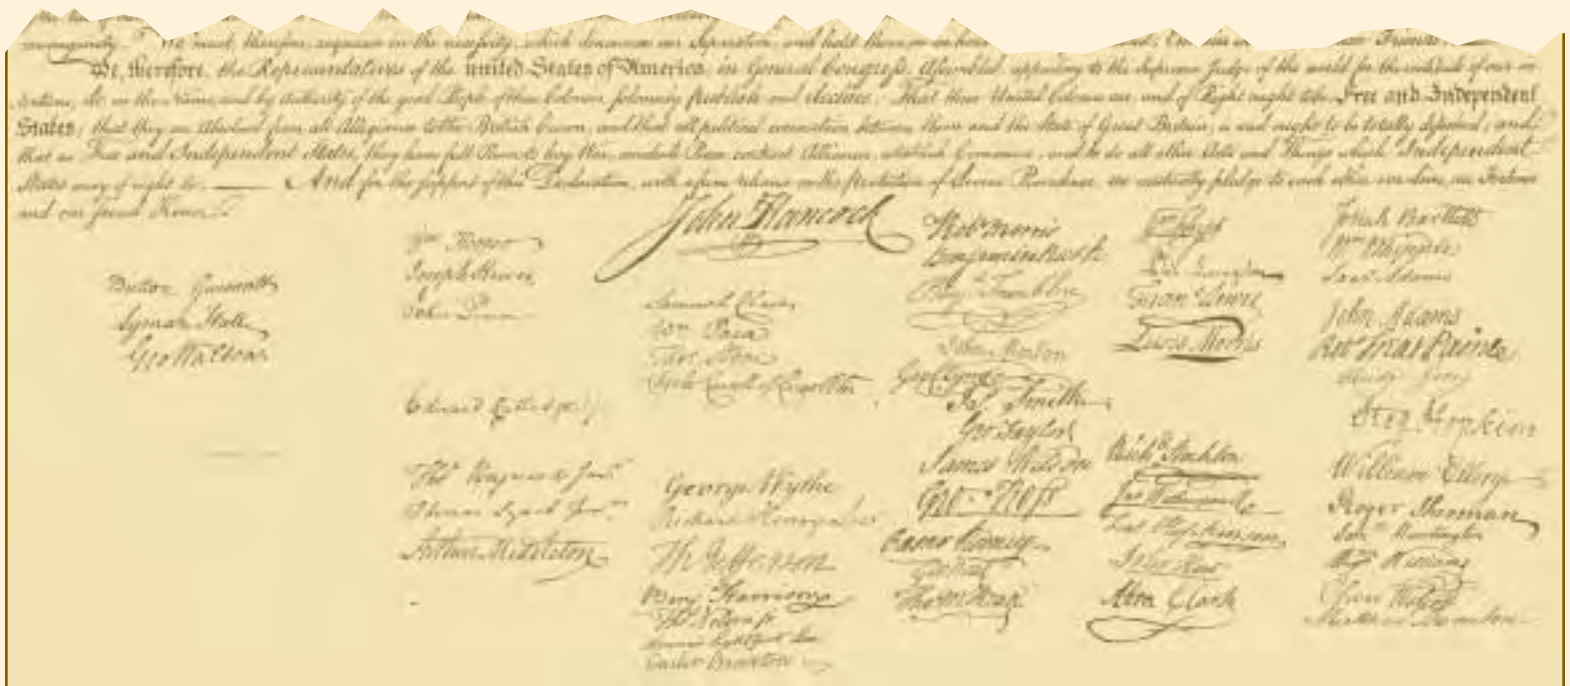 We, therefore, the Representatives of the united States of America, in General Congress, Assembled, appealing to the Supreme Judge of the world for the rectitude of our in-
tentions, do, in the Name, and by Authority of the good People of these Colonies, solemnly publish and declare, That these United Colonies are, and of Right ought to be Free and Independent
States; that they are Absolved from all Allegiance to the British Crown, and that all political connection between them and the State of Great Britain, is and ought to be totally dissolved; and
that as Free and Independent States, they have full Power to levy War, conclude Peace contract Alliances, establish Commerce, and to do all other Acts and Things which Independent
States may of right do. — And for the support of this Declaration, with a firm reliance on the protection of divine Providence, we mutually pledge to each other our Lives, our Fortunes
and our sacred Honor.
Button Gwinnett
Lyman Hall
Geo Walton
Wm Hooper
Joseph Hewes
John Penn
Edward Rutledge
Thos Heyward Junr
Thomas Lynch Junr
Arthur Middleton
John Hancock
Samuel Chase
Wm Paca
Thos Stone
Charles Carroll of Carrollton
George Wythe
Richard Henry Lee
Th Jefferson
Benj Harrison
Thos Nelson jr
Francis Lightfoot Lee
Carter Braxton
Robt Morris
Benjamin Rush
Benj Franklin
John Morton
Geo Clymer
Jas Smith
Geo Taylor
James Wilson
Geo Ross
Caesar Rodney
Geo Read
Tho M Kean
Wm Floyd
Phil Livingston
Frans Lewis
Lewis Morris
Richd Stockton
Jno Witherspoon
Fras Hopkinson
John Hart
Abra Clark
Josiah Bartlett
Wm Whipple
Saml Adams
John Adams
Robt Treat Paine
Elbridge Gerry
Step Hopkins
William Ellery
Roger Sherman
Saml Huntington
Wm Williams
Oliver Wolcott
Matthew Thornton